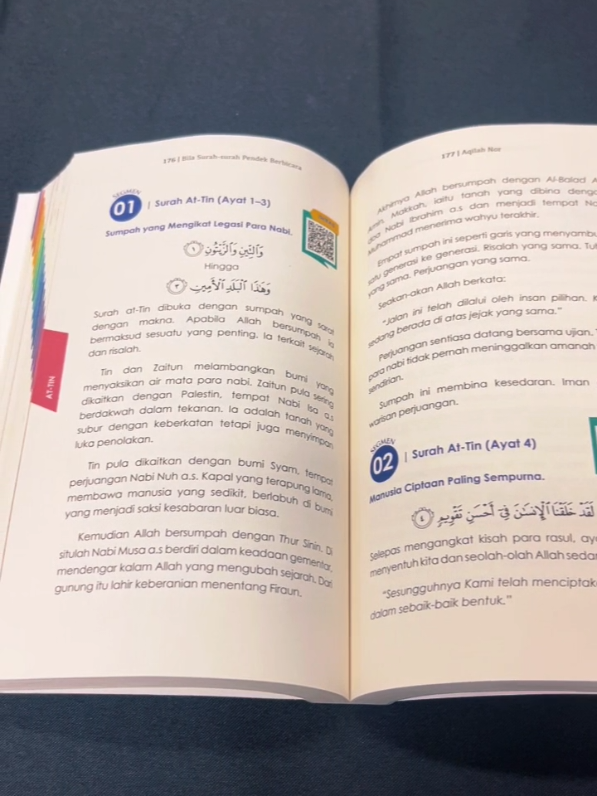 176 | Bila Surah-surah Pendek Berbicara
SEGMEN
01 | Surah At-Tin (Ayat 1–3)
Sumpah yang Mengikat Legasi Para Nabi.
وَٱلتِّينِ وَٱلزَّيْتُونِ ١
Hingga
وَهَٰذَا ٱلْبَلَدِ ٱلْأَمِينِ ٣
Surah at-Tin dibuka dengan sumpah yang sarat
dengan makna. Apabila Allah bersumpah, ia
bermaksud sesuatu yang penting. Ia terkait sejarah
dan risalah.
Tin dan Zaitun melambangkan bumi yang
menyaksikan air mata para nabi. Zaitun pula sering
dikaitkan dengan Palestin, tempat Nabi Isa a.s
berdakwah dalam tekanan. Ia adalah tanah yang
subur dengan keberkatan tetapi juga menyimpan
luka penolakan.
Tin pula dikaitkan dengan bumi Syam, tempat
perjuangan Nabi Nuh a.s. Kapal yang terapung lama,
membawa manusia yang sedikit, berlabuh di bumi
yang menjadi saksi kesabaran luar biasa.
Kemudian Allah bersumpah dengan Thur Sinin. Di
situlah Nabi Musa a.s berdiri dalam keadaan gementar,
mendengar kalam Allah yang mengubah sejarah. Dari
gunung itu lahir keberanian menentang Firaun.
AT-TIN
177 | Aqilah Nor
Akhirnya Allah bersumpah dengan Al-Balad
Amin, Makkah, iaitu tanah yang dibina
doa Nabi Ibrahim a.s dan menjadi tempat
Muhammad menerima wahyu terakhir.
Empat sumpah ini seperti garis yang
satu generasi ke generasi. Risalah yang sama.
yang sama. Perjuangan yang sama.
Seakan-akan Allah berkata:
"Jalan ini telah dilalui oleh insan pilihan.
sedang berada di atas jejak yang sama."
Perjuangan sentiasa datang bersama ujian.
para nabi tidak pernah meninggalkan amanah
sendirian.
Sumpah ini membina kesedaran. Iman
warisan perjuangan.
SEGMEN
02 | Surah At-Tin (Ayat 4)
Manusia Ciptaan Paling Sempurna.
لَقَدْ خَلَقْنَا ٱلْإِنسَٰنَ فِىٓ أَحْسَنِ تَقْوِيمٍ ٤
Selepas mengangkat kisah para rasul,
menyentuh kita dan seolah-olah Allah
"Sesungguhnya Kami telah
dalam sebaik-baik bentuk."